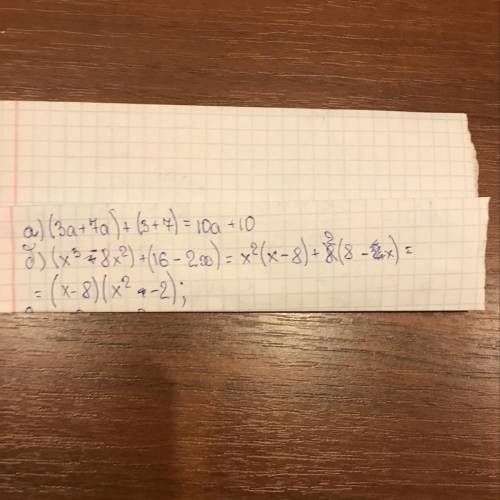 а) (3a+7a)+(3+7)=10a+10
б) (x³-8x²)+(16-2x)=x²(x-8)+2(8-x)=
=(x-8)(x²-2);